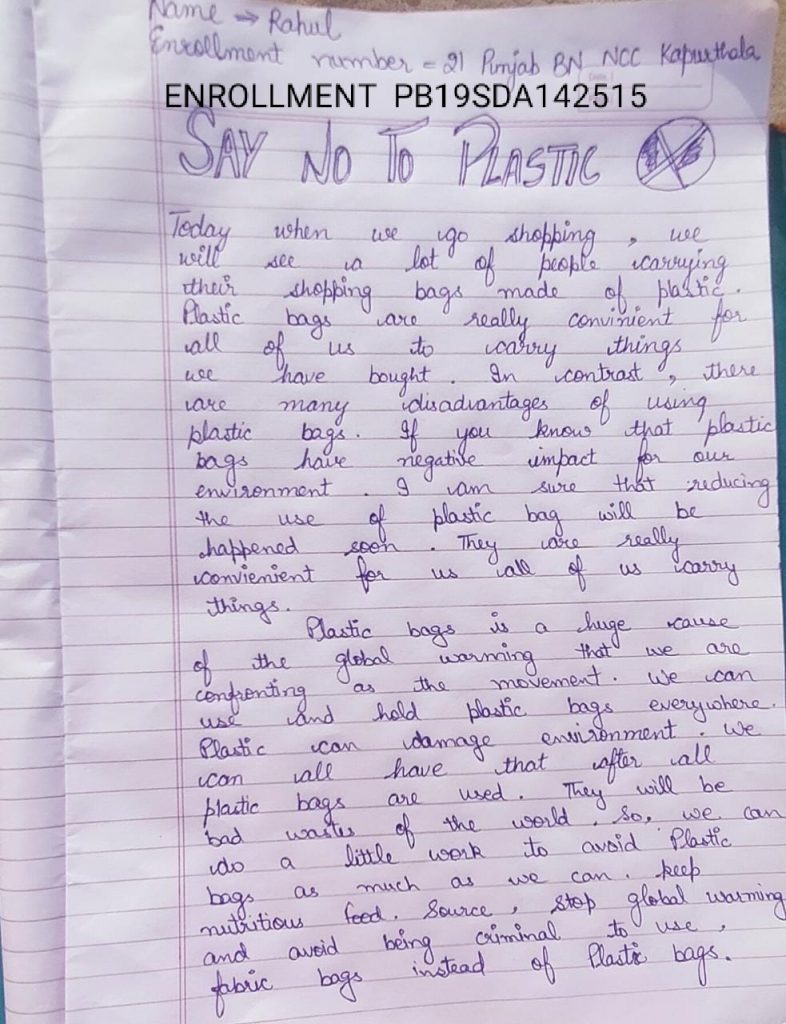 Name → Rahul
Enrollment number = 21 Punjab BN NCC Kapurthala
ENROLLMENT PB19SDA142515
SAY NO TO PLASTIC
Today when we go shopping, we
will see a lot of people carrying
their shopping bags made of plastic.
Plastic bags are really convinient for
all of us to carry things
we have bought. In contrast, there
are many disadvantages of using
plastic bags. If you know that plastic
bags have negative impact for our
environment. I am sure that reducing
the use of plastic bag will be
happened soon. They are really
convienient for us all of us carry
things.
Plastic bags is a huge cause
of the global warming that we are
confronting as the movement. We can
use and hold plastic bags everywhere.
Plastic can damage environment. We
can all have that after all
plastic bags are used. They will be
bad wastes of the world. So, we can
do a little work to avoid Plastic
bags as much as we can. keep
nutritious feed. Source, stop global warming
and avoid being criminal to use,
fabric bags instead of Plastic bags.